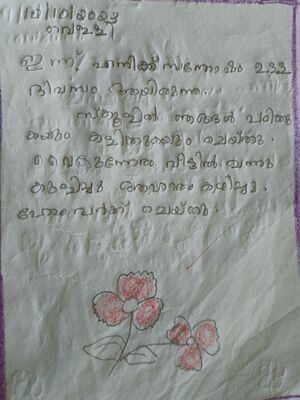 വെള്ളി
ഇന്ന് എനിക്ക് സന്തോഷം ഉള്ള
ദിവസം ആയിരുന്നു.
സ്കൂളിൽ ഞങ്ങൾ പഠിക്കു
കയും കളിക്കുകയും ചെയ്തു.
വൈകുന്നേരം വീട്ടിൽ വന്നു
കുളിച്ചു ആഹാരം കഴിച്ചു.
ഹോംവർക്ക് ചെയ്തു.